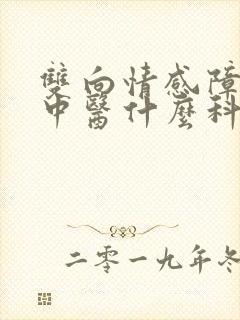 雙向情感障
中醫什麼科
二零一九年冬